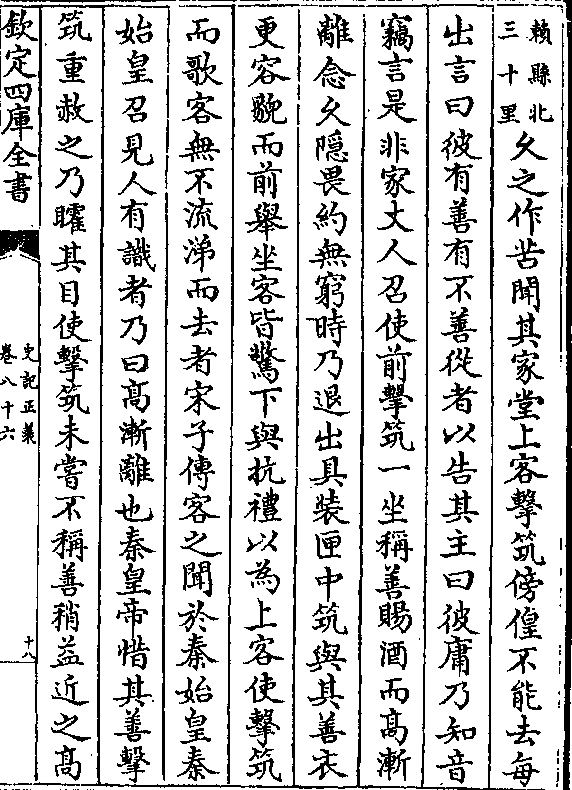 賴縣北
三十里
乆之作苦聞其家堂上客擊筑傍偟不能去每
出言曰彼有善有不善從者以告其主曰彼庸乃知音
竊言是非家丈人召使前擊筑一坐稱善賜酒而髙漸
離念乆隠畏約無窮時乃退出具装匣中筑與其善衣
更容貌而前舉坐客皆驚下與抗禮以為上客使擊筑
而歌客無不流涕而去者宋子傳客之聞於秦始皇秦
始皇召見人有識者乃曰髙漸離也秦皇帝惜其善擊
筑重赦之乃矐其目使擊筑未嘗不稱善稍益近之髙
欽定四庫全書
史記正義
卷八十六
十八